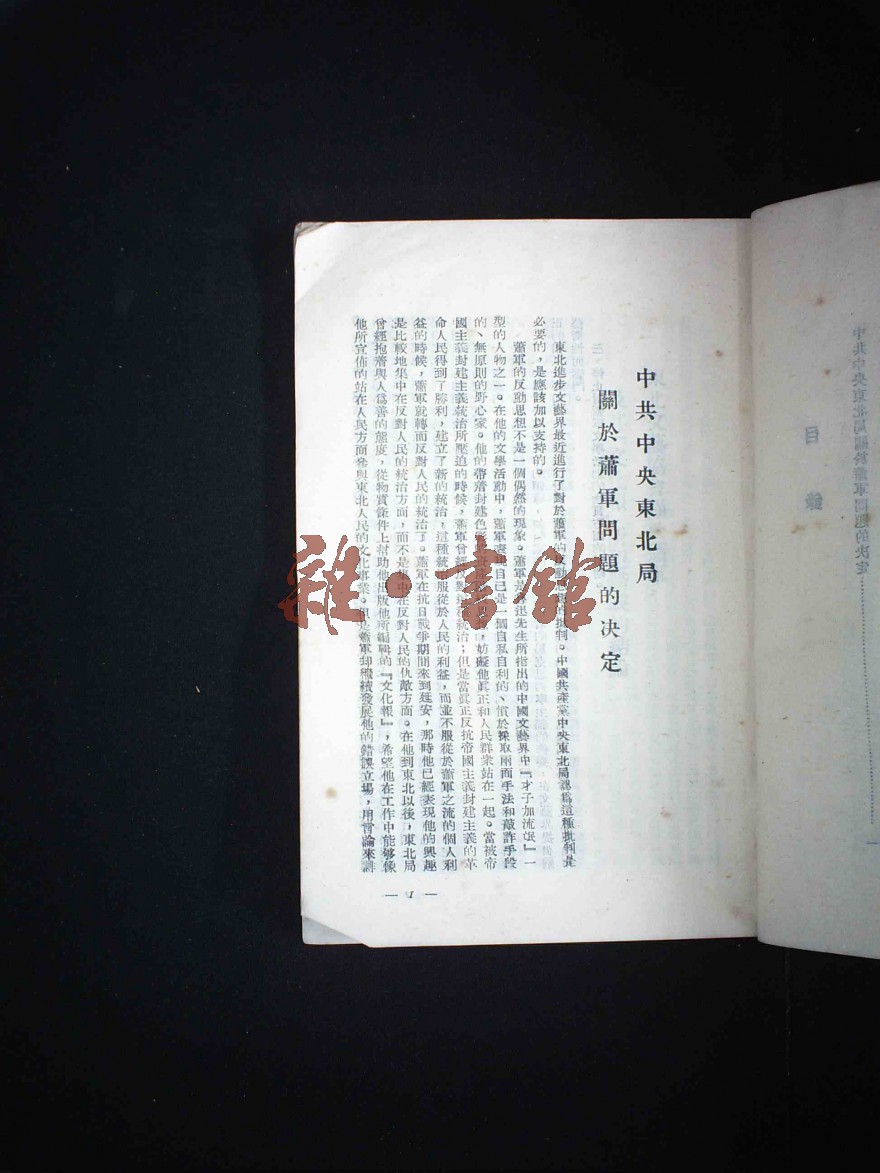 目錄
中共中央東北局關於蕭軍問題的决定
中共中央東北局
關於蕭軍問題的决定
東北進步文藝界最近進行了對於蕭軍的批判。中國共產黨中央東北局認爲這種批判是
必要的，是應該加以支持的。
蕭軍的反動思想不是一個偶然的現象。蕭軍是魯迅先生所指出的中國文藝界中『才子加流氓』一
型的人物之一。在他的文學活動中，蕭軍表現自己是一個自私自利的、慣於採取兩面手法和敲詐手段
的、無原則的野心家。他的帶着封建色彩的妨礙他眞正和人民群衆站在一起。當被帝
國主義封建主義統治所壓迫的時候，蕭軍曾經反對這種統治；但是當眞正反抗帝國主義封建主義的革
命人民得到了勝利，建立了新的統治，這種統治服從於人民的利益，而並不服從於蕭軍之流的個人利
益的時候，蕭軍就轉而反對人民的統治了。蕭軍在抗日戰爭期間來到延安，那時他已經表現他的興趣
是比較地集中在反對人民的統治方面，而不是集中在反對人民的仇敵方面。在他到東北以後，東北局
曾經抱着與人爲善的態度，從物質條件上幇助他出版他所編輯的『文化報』，希望他在工作中能够像
他所宣佈的站在人民方面參與東北人民的文化事業。但是蕭軍却繼續發展他的錯誤立場，用言論來誹
— 1 —
雜·書館